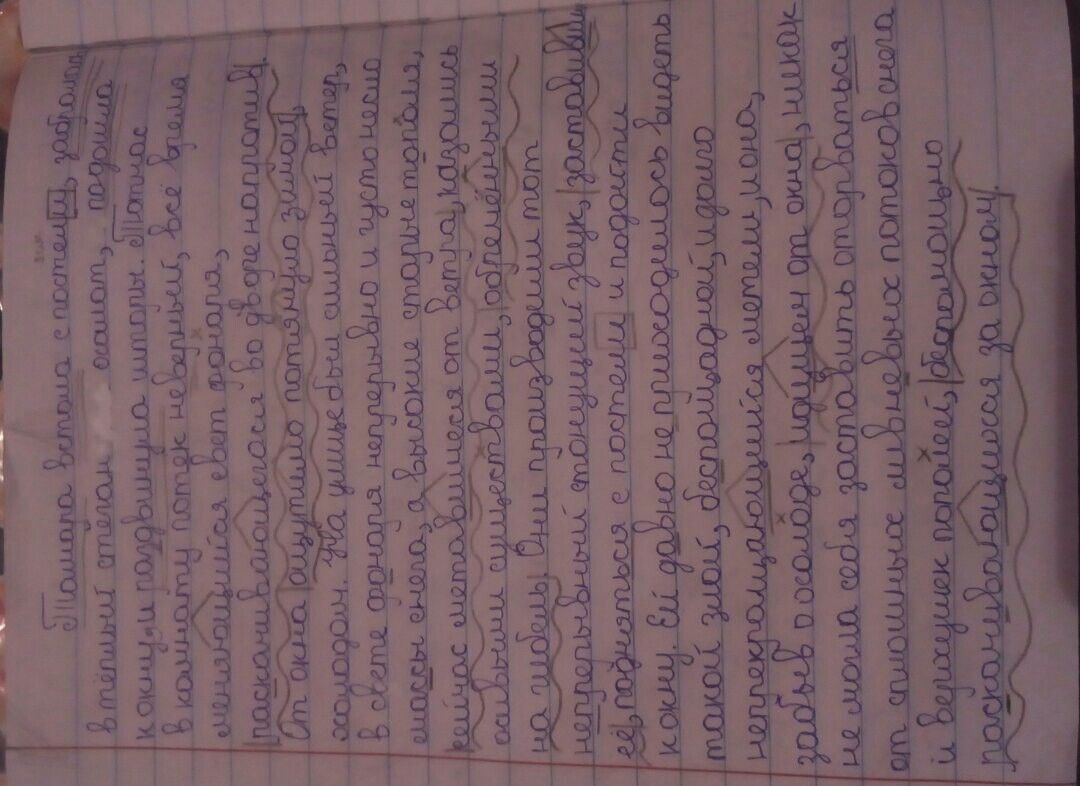 Тамара встала с постели, забрала
в тёплый стеган халат, подошла
к окну и раздвинула шторы. Тотчас
в комнату потек неверный, всё время
меняющийся свет фонаря,
раскачивающегося во дворе напротив.
От окна ощутимо потянуло зимой,
холодом. На улице был сильный ветер,
в свете фонаря непрерывно и густо несло
массы снега, а высокие старые тополя,
сейчас метавшиеся от ветра, казались
живыми существами, обречёнными
на гибель. Они производили тот
непрерывный стонущий звук, заставивший
её подняться с постели и подойти
к окну. Ей давно не приходилось видеть
такой злой, беспощадной, и долго
непрекращающейся метели, и она,
забыв о холоде, идущем от окна, никак
не могла себя заставить оторваться
от сплошных ливневых потоков снега
и верхушек тополей, беспомощно
раскачивающихся за окном.